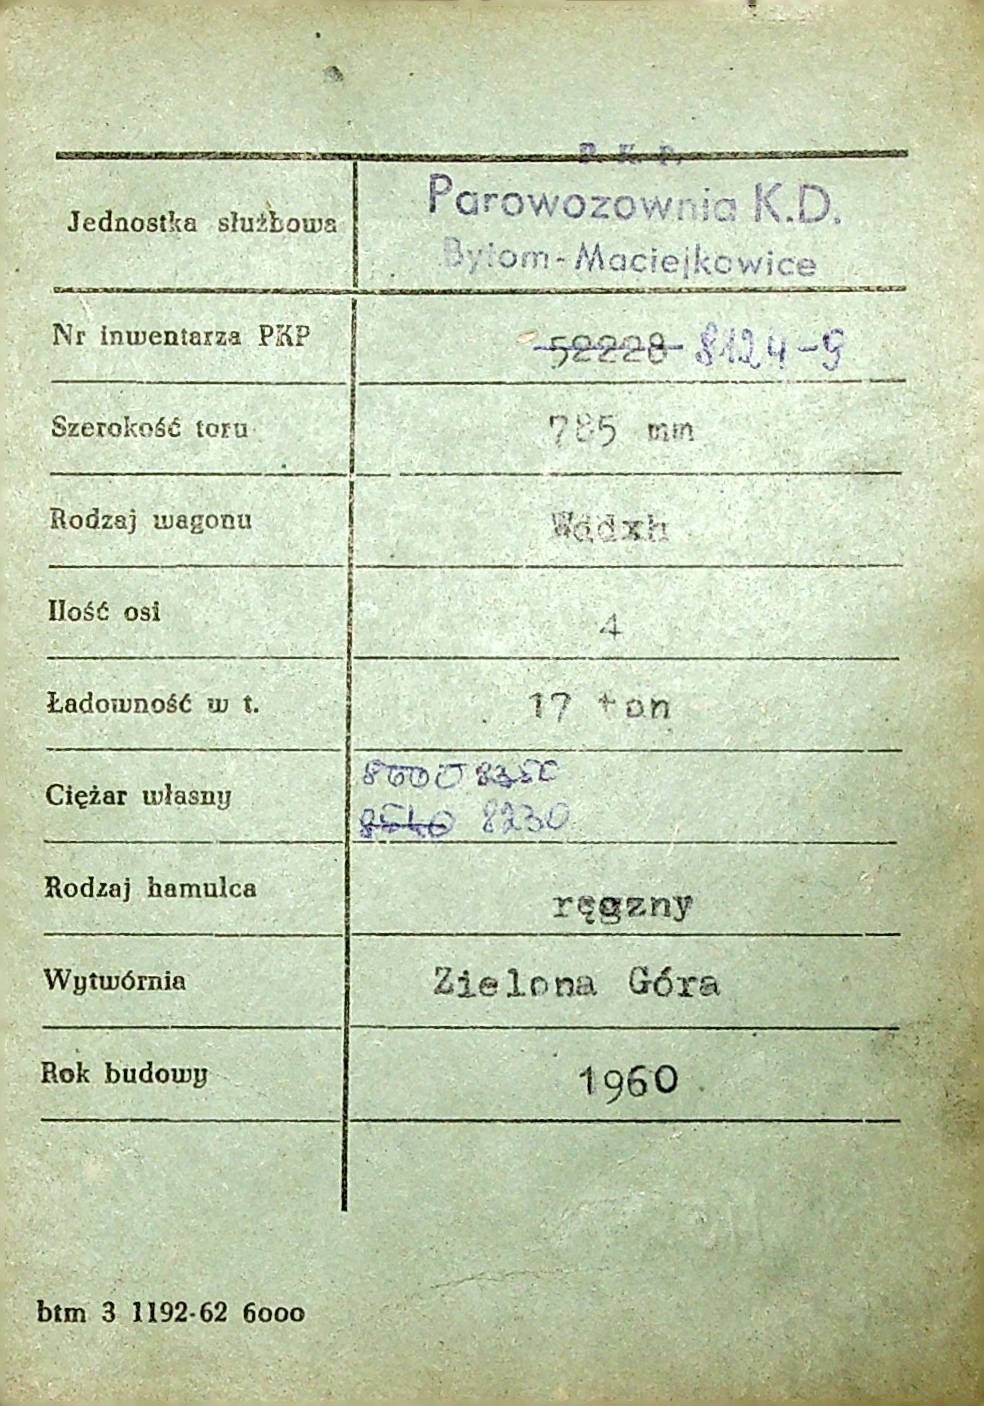 P. K. P.
Jednostka służbowa Parowozownia K.D.
Bytom-Maciejkowice
Nr inwentarza PKP 52228 8124-9
Szerokość toru 785 mm
Rodzaj wagonu Wddxh
Ilość osi 4
Ładowność w t. 17 ton
Ciężar własny 8600
8230
Rodzaj hamulca ręczny
Wytwórnia Zielona Góra
Rok budowy 1960
btm 3 1192-62 6000